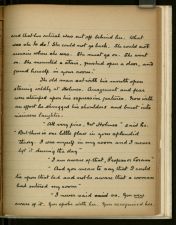 and that his retreat was cut off behind her. What
was she to do? She could not go back. She could not
remain where she was. She must go on. She went
on. She mounted a stair, pushed open a door, and
found herself in your room."
The old man sat with his mouth open
staring wildly at Holmes. Amazement and fear
were stamped upon his expressive features. Now with
an effort he shrugged his shoulders and burst into
insincere laughter.
"All very fine, Mr Holmes" said he.
"But there is one little flaw in your splendid
theory. I was myself in my room and I never
left it during the day."
"I am aware of that, Professor Coram"
"And you mean to say that I could
lie upon that bed and not be aware that a woman
had entered my room"
"I never said so. You were
aware of it. You spoke with her. You recognised her.